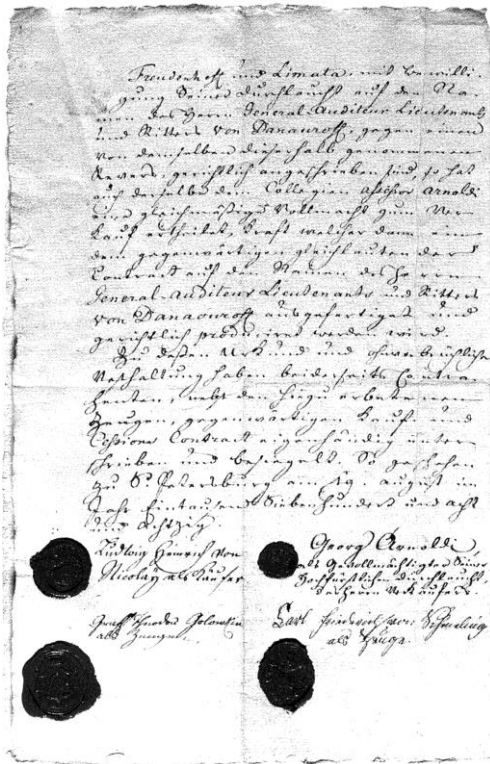 Freudenhoff und Limata, mit Bewilli-
gung Seiner Durchlaucht auf den Na-
men des Herrn General-Auditeur Lieutenants
und Ritters von Danauroff, gegen einen
von demselben dieserhalb genommenen
Revers, gerichtlich angeschrieben sind, so hat
auch derselbe dem Collegien Assessor Arnoldi
eine gleichmäßige Vollmacht zum Ver-
kauf ertheilet, kraft welcher denn ein
dem gegenwärtigen gleichlautender
Contract auf den Namen des Herrn
General-Auditeur Lieutenants und Ritters
von Danauroff ausgefertiget und
gerichtlich produciret werden wird.
Zu deßen Urkund und ohnverbrüchlicher
Festhaltung haben beiderseits Contra-
henten, nebst den hiezu erbetenen
Zeugen, gegenwärtigen Kauf- und
Cessions Contract eigenhändig unter-
schrieben und besiegelt. So geschehen
zu St Petersburg am 19. August im
Jahr Eintausend Siebenhundert und acht
und achtzig.
Ludwig Heinrich von
Nicolay als Käufer
Georg Arnoldi,
als Gevollmächtigter Seiner
Hochfürstlichen Durchlaucht
des Herrn Verkäufers.
Graff Theodor Golowkin
als Zeuge
Carl Friederich von Schmeling
als Zeuge.